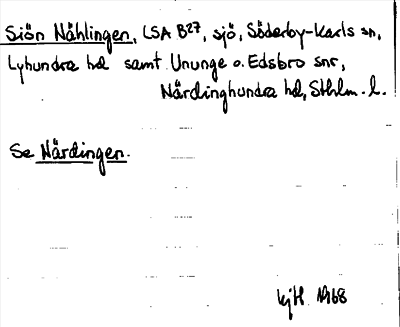 Siön Nåhlingen, LSA B27, sjö, Söderby-Karls sn,
Lyhundra hd samt Ununge o. Edsbro snr,
Närdinghundra hd, Sthlm. l.
Se Närdingen.
kjH 1968